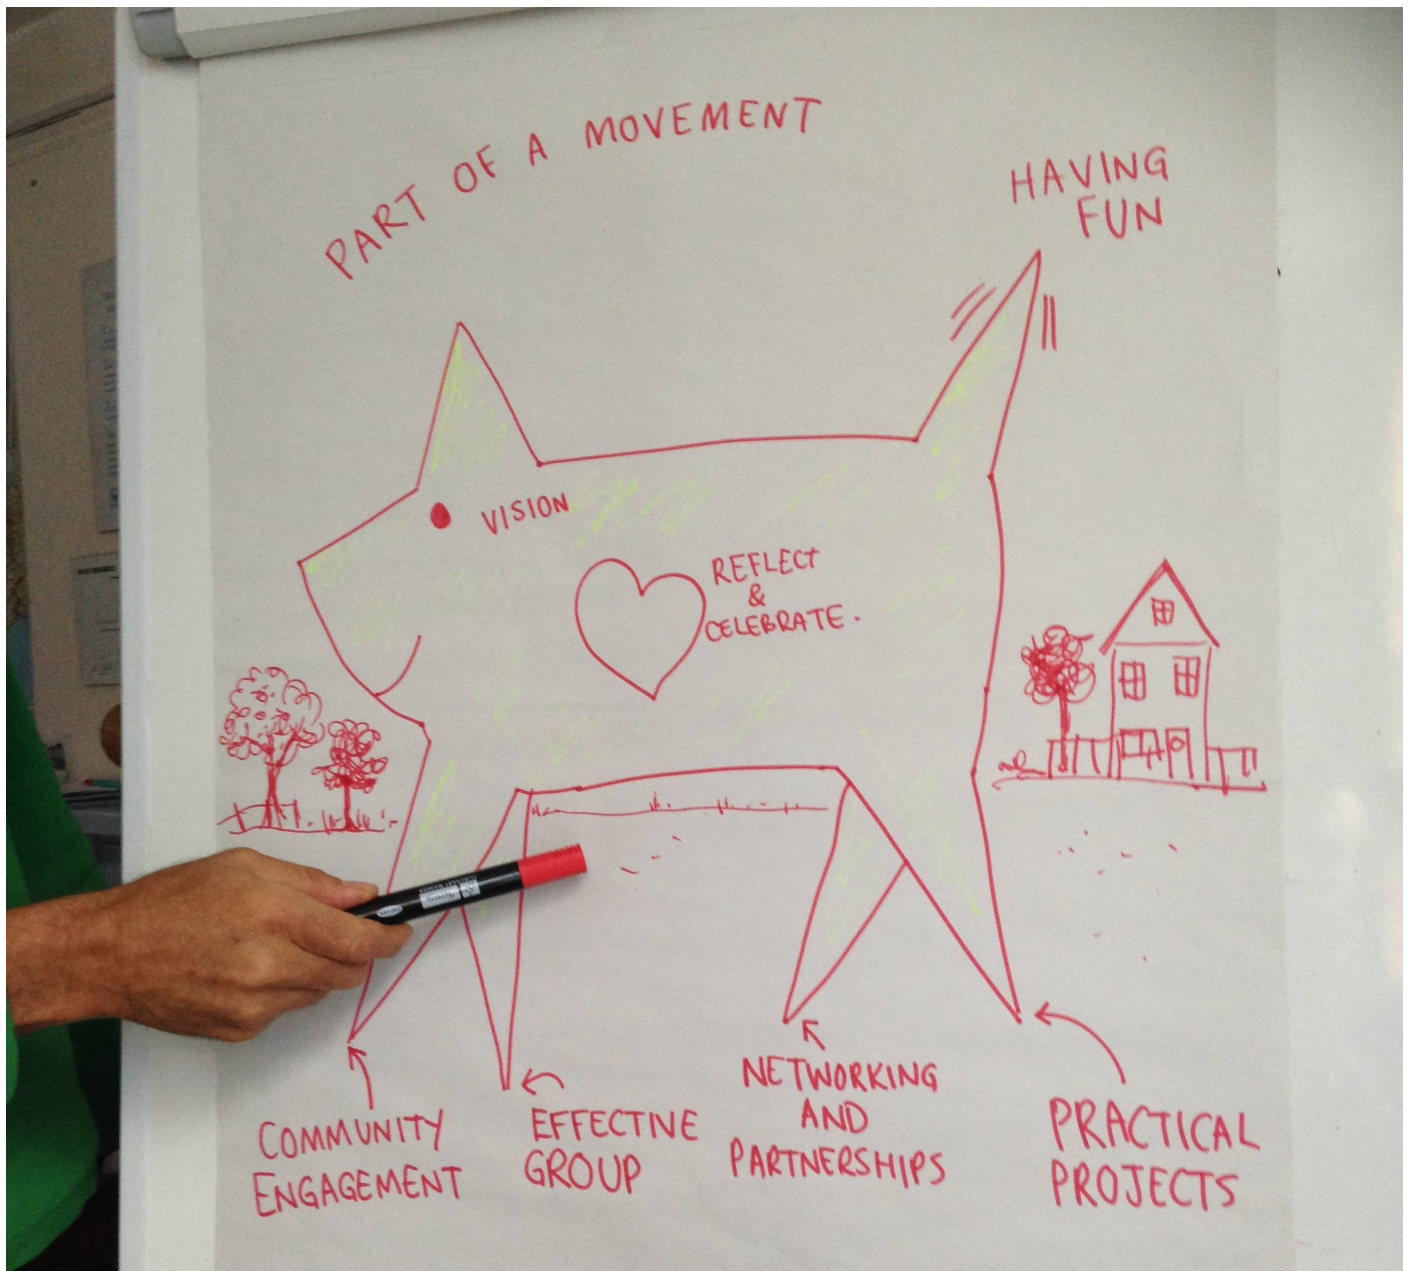 PART OF A MOVEMENT
HAVING
FUN
VISION
REFLECT
&
CELEBRATE.
COMMUNITY
ENGAGEMENT
EFFECTIVE
GROUP
NETWORKING
AND
PARTNERSHIPS
PRACTICAL
PROJECTS